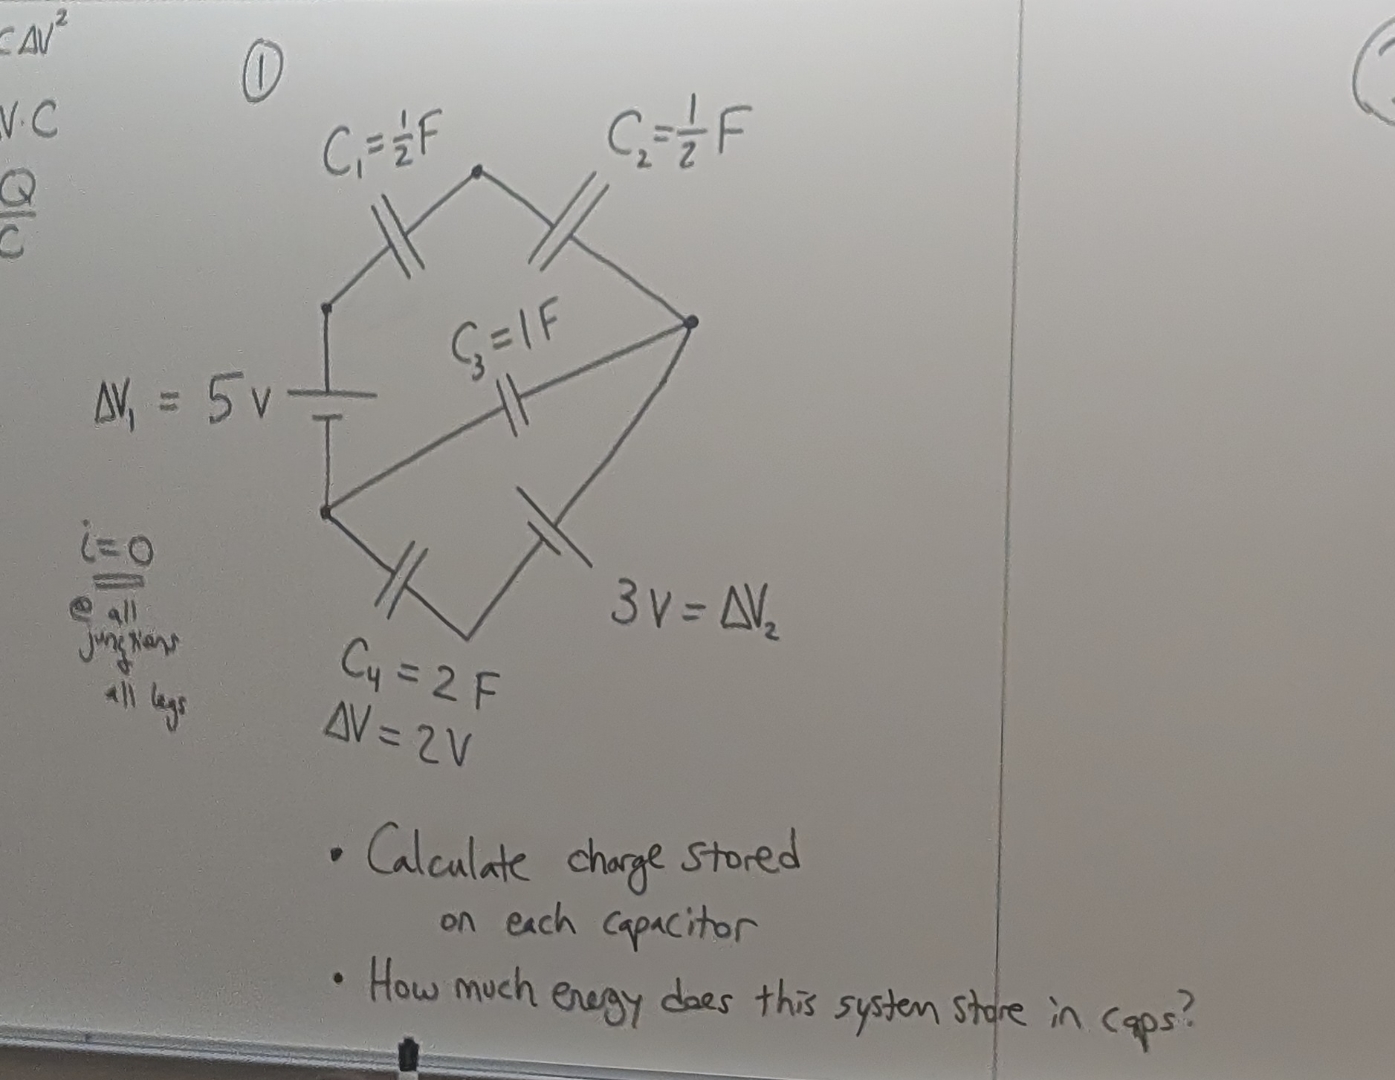 CΔV²
V·C
Q/C
①
C₁=½F
C₂=½F
C₃=1F
ΔV₁ = 5v
i=0
@ all
junctions
all legs
3V=ΔV₂
C₄=2F
ΔV=2V
• Calculate charge stored
on each capacitor
• How much energy does this system store in caps?